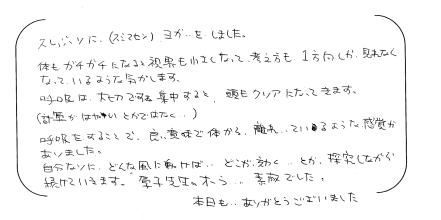 スレジリに、(スミマセン) ヨガ…をしました。
体もガチガチになると視界も小さくなって、考え方も、1方向しか、見れなく
なっているような気がします。
呼吸は、大切ですね 集中すると、頭もクリアになってきます。
(計算がはやいとかではなく…)
呼吸をすることで、良い意味で体から、離れ…ているような感覚が
ありました。
自分なりに、どんな風に動けば… どこが効く…とか、探究しながら
続けていきます。 章子先生の木のうら… 素敵でした。
本日も… ありがとうございました